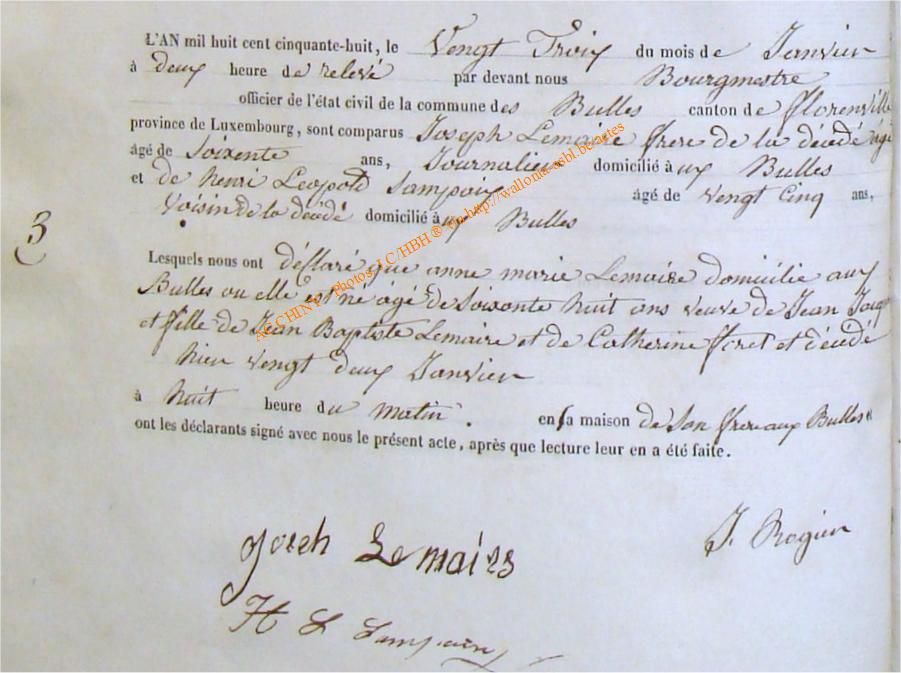 L'AN mil huit cent cinquante-huit, le Vengt Troix du mois de Janvier
à deux heure de relevé par devant nous Bourgmestre
officier de l'état civil de la commune des Bulles canton de florenville
province de Luxembourg, sont comparus Joseph Lemaire frere de la décédé agé
âgé de Soixente ans, Journalier domicilié à ux Bulles
et de henri Leopold Sampaix âgé de vengt Cinq ans,
Voisin de la décédé domicilié à ux Bulles
3
Lesquels nous ont déclaré que anne marie Lemaire domicilie aux
Bulles ou elle est né âgé de Soixonte huit ans veuve de Jean
et fille de Jean Baptiste Lemaire et de Catherine et décédé
hier vengt deux Janvier
à huit heure du matin. en sa maison de Son frere aux Bulles
ont les déclarants signé avec nous le présent acte, après que lecture leur en a été faite.
J. Rogier
Joseh Lemaire
H L Sampaix
ARCHINY Photos LC/HBH® in http://wallonia-asbl.be/actes